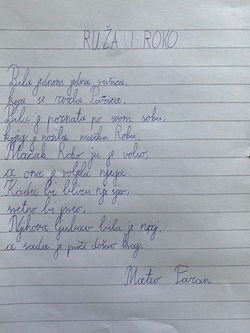 RUŽA I ROKO
Bila jednom jedna ružica,
koja se zvala Ružica.
Bila je poznata po svom soku,
kojeg je nosila mačku Roku.
Mačak Roko ju je volio,
a ona je voljela njega.
Kada bi blizu nje
sretno bi preo.
Njihova ljubav bila je naj,
a sada je priči došao kraj.
Mateo